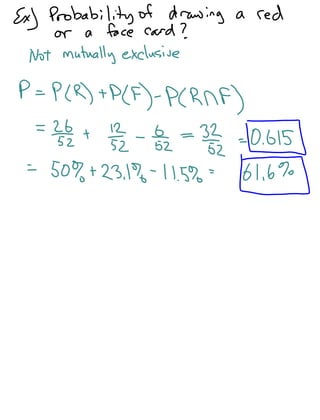 Ex) Probability of drawing a red
or a face card?
Not mutually exclusive
P = P(R) + P(F) - P(R∩F)
= 26/52 + 12/52 - 6/52 = 32/52 = 0.615
= 50% + 23.1% - 11.5% = 61.6%